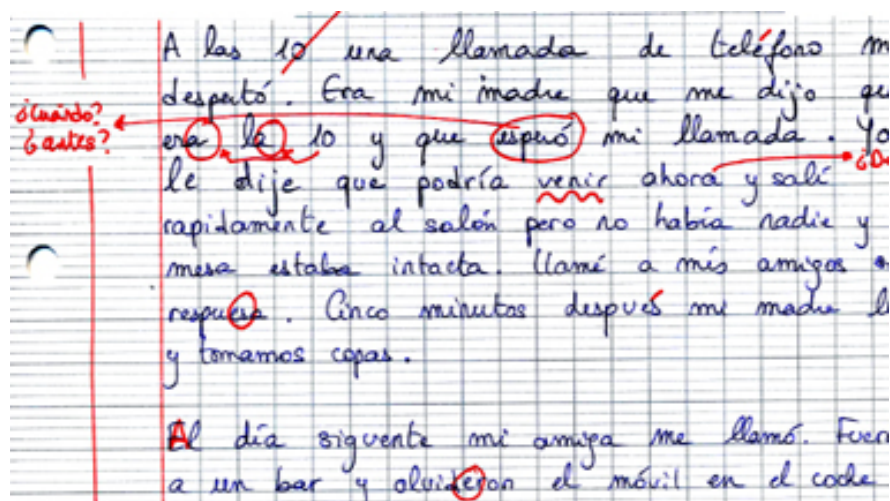 A las 10 una llamada de teléfono m
despertó. Era mi madre que me dijo que
¿Cuándo?
¿antes?
era la 10 y que esperó mi llamada. Yo
le dije que podría venir ahora y salí ¿De
rapidamente al salón pero no había nadie y
mesa estaba intacta. Llamé a mis amigos
respuesa. Cinco minutos después mi madre ll
y tomamos copas.
Al día siguente mi amiga me llamó. Fuero
a un bar y olvideron el móvil en el coche